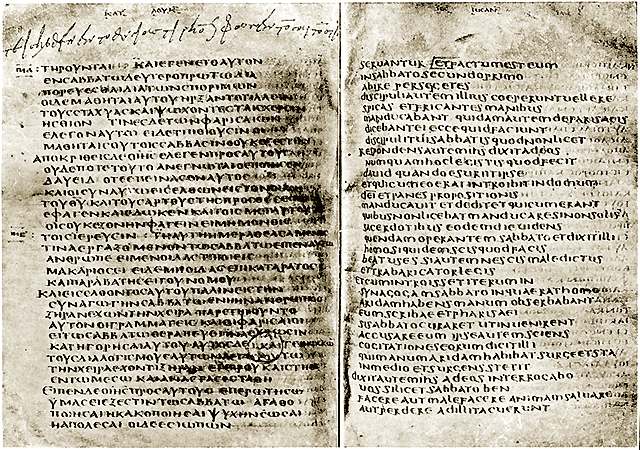 ΚΑΤ ΛΟΥΚ
ΤΗΡΟΥΝΤΑΙ ΚΑΙΕΓΕΝΕΤΟΑΥΤΟΝ
ΕΝϹΑΒΒΑΤΩΔΕΥΤΕΡΟΠΡΩΤΩΔΙΑ
ΠΟΡΕΥΕϹΘΑΙΔΙΑΤΩΝϹΠΟΡΙΜΩΝ
ΟΙΔΕΜΑΘΗΤΑΙΑΥΤΟΥΗΡΞΑΝΤΟΤΙΛΛΕΙΝ
ΤΟΥϹϹΤΑΧΥΑϹΚΑΙΨΩΧΟΝΤΕϹΤΑΙϹΧΕΡϹΙΝ
ΗϹΘΙΟΝ ΤΙΝΕϹΔΕΤΩΝΦΑΡΙϹΑΙΩΝ
ΕΛΕΓΟΝΑΥΤΩΕΙΔΕΤΙΠΟΙΟΥϹΙΝΟΙ
ΜΑΘΗΤΑΙϹΟΥΤΟΙϹϹΑΒΒΑϹΙΝΟΟΥΚΕΞΕϹΤΙΝ
ΑΠΟΚΡΙΘΕΙϹΔΕΟΙΗϹΕΛΕΓΕΝΠΡΟϹΑΥΤΟΥϹ
ΟΥΔΕΠΟΤΕΤΟΥΤΟΑΝΕΓΝΩΤΑΙΟΕΠΟΙΗϹΕΝ
ΔΑΥΕΙΔΟΤΕΕΠΕΙΝΑϹΕΝΑΥΤΟϹ
ΚΑΙΟΙϹΥΝΑΥΤΩΕΙϹΕΛΘΩΝΕΙϹΤΟΝΟΙΚΟΝ
ΤΟΥΘΥΚΑΙΤΟΥϹΑΡΤΟΥϹΤΗϹΠΡΟϹΘΕϹΕΩϹ
ΕΦΑΓΕΝΚΑΙΕΔΩΚΕΝΚΑΙΤΟΙϹΜΕΤΑΥΤΟΥ
ΟΙϹΟΥΚΕΞΟΝΗΝΦΑΓΕΙΝΕΙΜΗΜΟΝΟΙϹ
ΤΟΙϹΙΕΡΕΥϹΙΝ ΤΗΑΥΤΗΗΜΕΡΑΘΕΑϹΑΜΕΝΟϹ
ΤΙΝΑΕΡΓΑΖΟΜΕΝΟΝΤΩϹΑΒΒΑΤΩΕΙΠΕΝΑΥΤΩ
ΑΝΘΡΩΠΕΕΙΜΕΝΟΙΔΑϹΤΙΠΟΙΕΙϹ
ΜΑΚΑΡΙΟϹΕΙΕΙΔΕΜΗΟΙΔΑϹΕΠΙΚΑΤΑΡΑΤΟϹ
ΚΑΙΠΑΡΑΒΑΤΗϹΕΙΤΟΥΝΟΜΟΥ
ΚΑΙΕΙϹΕΛΘΟΝΤΟϹΑΥΤΟΥΠΑΛΙΝΕΙϹΤΗΝ
ϹΥΝΑΓΩΓΗΝϹΑΒΒΑΤΩΕΝΗΗΝΑΝΘΡΩΠΟϹ
ΞΗΡΑΝΕΧΩΝΤΗΝΧΕΙΡΑΠΑΡΕΤΗΡΟΥΝΤΟ
ΑΥΤΟΝΟΙΓΡΑΜΜΑΤΕΙϹΚΑΙΟΙΦΑΡΙϹΑΙΟΙ
ΕΙΤΩϹΑΒΒΑΤΩΘΕΡΑΠΕΥΕΙΙΝΑΕΥΡΩϹΙΝ
ΚΑΤΗΓΟΡΗϹΑΙΑΥΤΟΥΑΥΤΟϹΔΕΓΕΙΝΩϹΚΩΝ
ΤΟΥϹΔΙΑΛΟΓΙϹΜΟΥϹΑΥΤΩΝΛΕΓΕΙΤΩ
ΤΗΝΧΕΙΡΑΕΧΟΝΤΙΞΗΡΑΝΕΓΕΙΡΟΥΚΑΙϹΤΗΘΙ
ΕΝΤΩΜΕϹΩ ΚΑΙΑΝΑϹΤΑϹΕϹΤΑΘΗ
ΕΙΠΕΝΔΕΟΙΗϹΠΡΟϹΑΥΤΟΥϹ ΕΠΕΡΩΤΗϹΩ
ΥΜΑϹΕΙΕΞΕϹΤΙΝΤΩϹΑΒΒΑΤΩ ΑΓΑΘΟ
ΠΟΙΗϹΑΙΗΚΑΚΟΠΟΙΗϹΑΙΨΥΧΗΝϹΩϹΑΙ
ΗΑΠΟΛΕϹΑΙΟΙΔΕΕϹΙΩΠΩΝ
seruantur etfactumesteum
insabbatosecundoprimo
abirepersegetes
discipuliautemilliuscoeperuntuellere
spicasetfricantesmanibus
manducabant quidamautemdefarisaeis
dicebanteieccequidfaciunt
discipulituisabbatisquodnonlicet
respondensautemihsdixitadeos
numquamhoclegistisquodfecit
dauidquandoesuriitipse
etquicumeoeratintroibitindomum
dei etpanespropositionis
manducauitetdeditetquicumerant
quibusnonlicebatmanducaresinonsolis
sacerdotibuseodemdieuidens
quendamoperantemsabbatoetdixitilli
homosiquidemscisquodfacis
beatusessiautemnescismaledictus
ettrabaricatorlegis
etcumintroissetiterumin
synagogamsabbatoinquaerathomo
aridamhabensmanumobserbabant
eumscribaeetpharisaei
sisabbatocuraretutinuenirent
accusareeumipseautemsciens
cogitationeseorumdicitilli
quimanumaridamhabibatsurgeetsta
inmedioetsurgensstetit
dixitautemihsadeosinterrogabo
uossilicetsabbatoben
facereautmalefacereanimamsaluare
autperdereadillitacuerunt